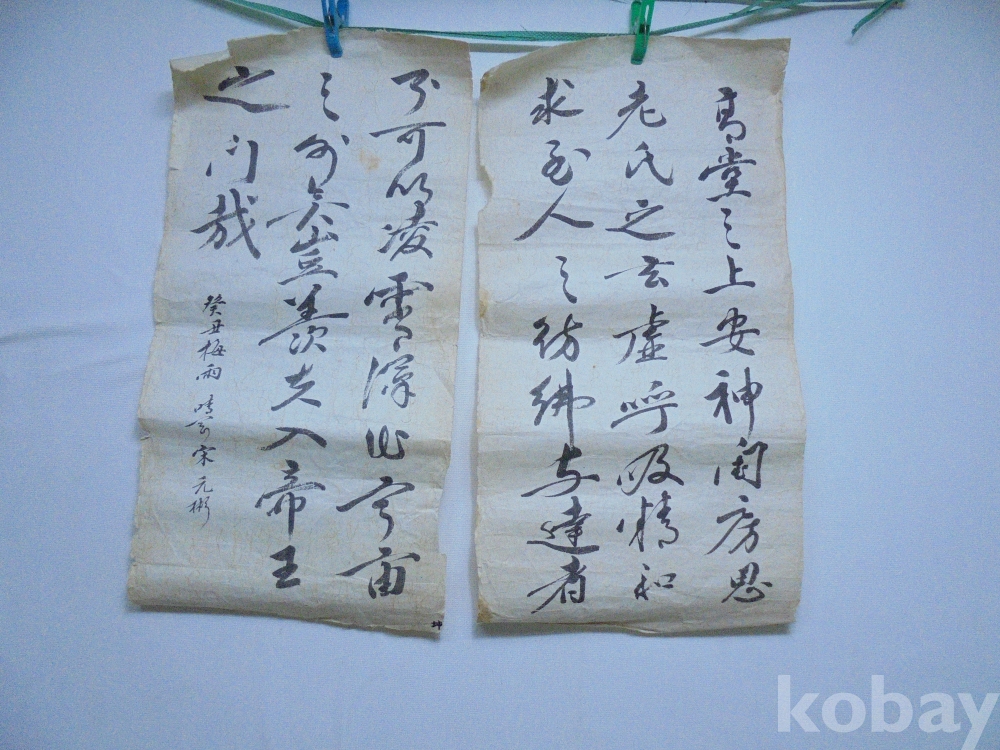 高堂之上安神閨房思
老氏之玄虛呼吸精和
求至人之彷彿與達者
則可以凌霄漢出宇宙
之外矣豈羨夫入帝王
之門哉
癸丑梅雨 晴雲宋元彬
坤
kobay